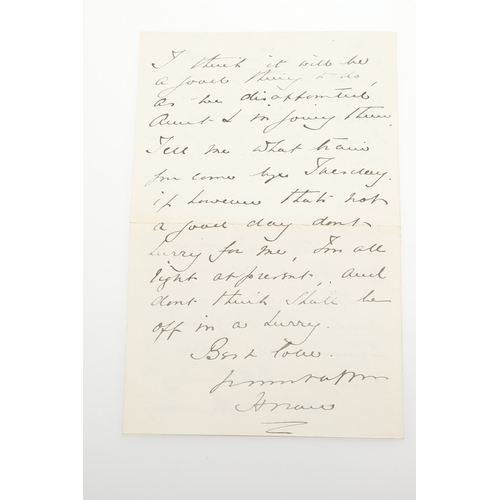 I think it will be
a good thing to do,
as he disappointed
Aunt L in joining them.
Tell me what train
you come bye Tuesday.
if however that's not
a good day don't
hurry for me, I'm all
right at present, and
don't think shall be
off in a hurry.
Best love.